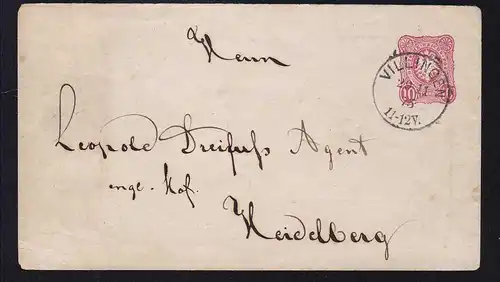 Herrn
VILLINGEN
11-12V.
Leopold Dreifuss Agent
enge. Hof.
Heidelberg
10